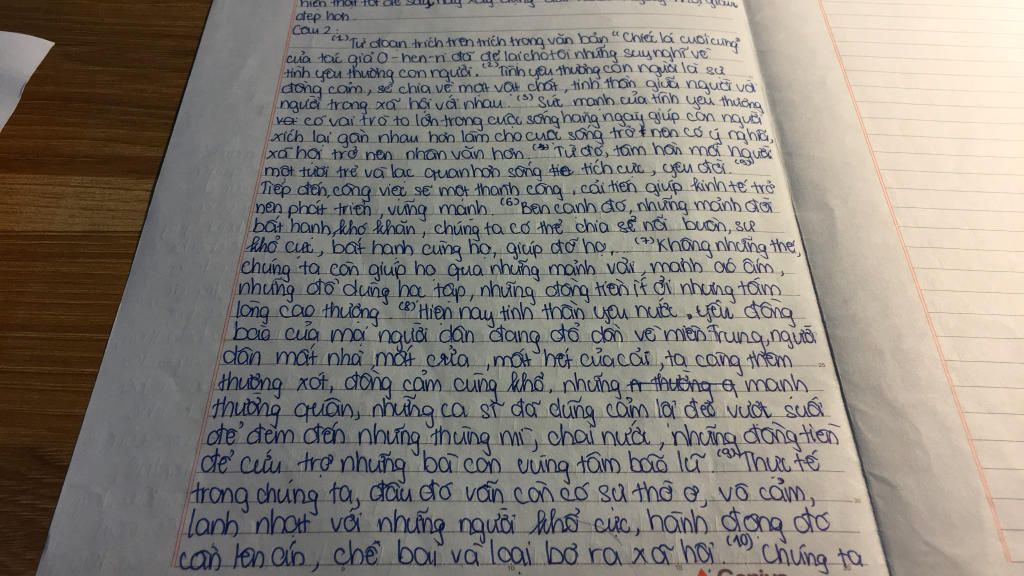 đẹp hơn.
Câu 2:
(1) Từ đoạn trích trên trích trong văn bản "Chiếc lá cuối cùng"
của tác giả O-hen-ri đã để lại cho tôi những suy nghĩ về
tình yêu thương con người. (2) Tình yêu thương con người là sự
đồng cảm, sẻ chia về mặt vật chất, tinh thần giữa người với
người trong xã hội với nhau. (3) Sức mạnh của tình yêu thương
có vai trò to lớn trong cuộc sống hàng ngày giúp con người
xích lại gần nhau hơn làm cho cuộc sống trở nên có ý nghĩa,
xã hội trở nên nhân văn hơn. (4) Từ đó, tâm hồn mỗi người
một tươi trẻ và lạc quan hơn sống tích cực, yêu đời. (5)
Tiếp đến, công việc sẽ một thành công, cải tiến giúp kinh tế trở
nên phát triển, vững mạnh. (6) Bên cạnh đó, những mảnh đời
bất hạnh, khó khăn, chúng ta có thể chia sẻ nỗi buồn, sự
khổ cực, bất hạnh cùng họ, giúp đỡ họ. (7) Không những thế,
chúng ta còn giúp họ qua những mảnh vải, manh áo ấm,
những đồ dùng học tập, những đồng tiền ít ỏi nhưng tấm
lòng cao thượng. (8) Hiện nay tinh thần yêu nước, yêu đồng
bào của mọi người dân đang đổ dồn về miền Trung, người
dân mất nhà mất cửa, mất hết của cải, ta càng thêm
thương xót, đồng cảm cùng khổ, những mạnh
thường quân, những ca sĩ đã dũng cảm lội đèo vượt suối
để đem đến những thùng mì, chai nước, những đồng tiền
để cứu trợ những bà con vùng tâm bão lũ. (9) Thực tế
trong chúng ta, đâu đó vẫn còn có sự thờ ơ, vô cảm,
lạnh nhạt với những người khổ cực, hành động đó
cần lên án, chê bai và loại bỏ ra xã hội. (10) Chúng ta